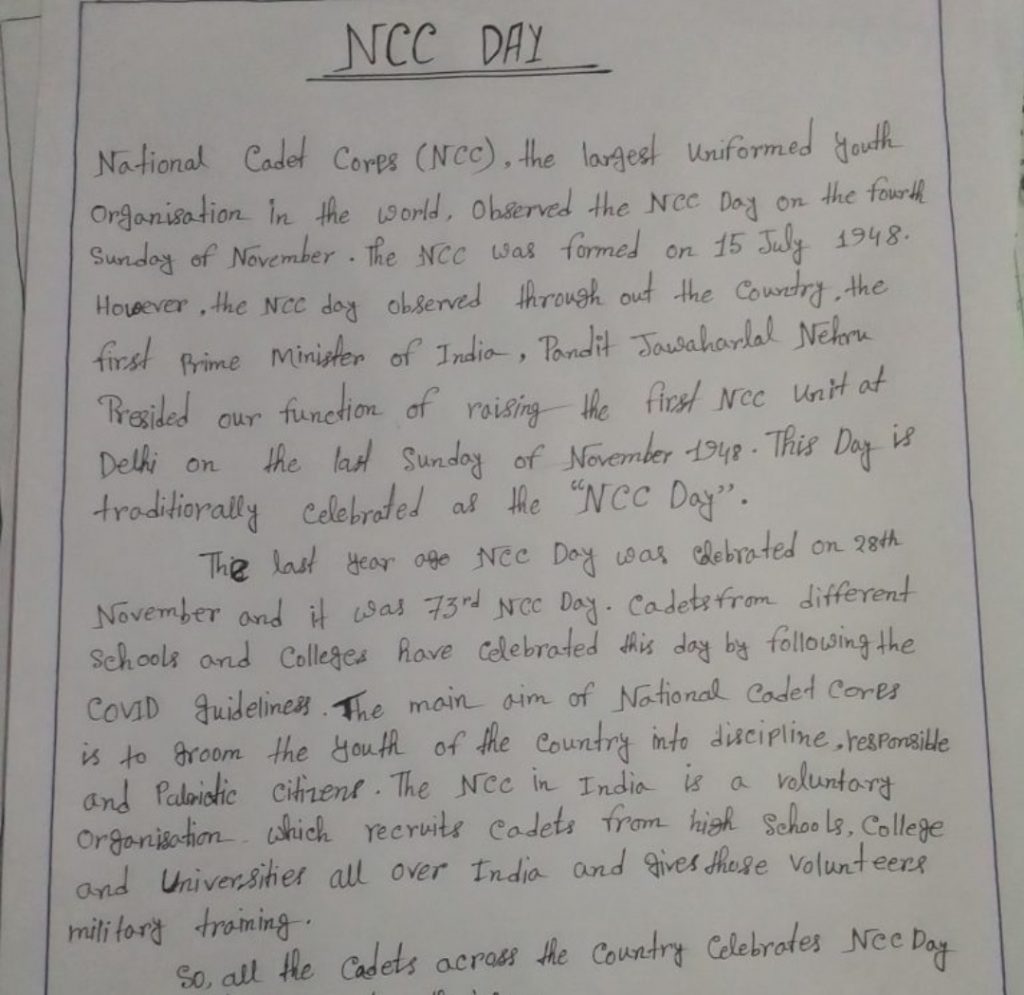 NCC DAY
National Cadet Corps (NCC), the largest Uniformed Youth
Organisation in the world, Observed the NCC Day on the fourth
Sunday of November. The NCC was formed on 15 July 1948.
However, the NCC day observed through out the Country, the
first Prime Minister of India, Pandit Jawaharlal Nehru
Presided our function of raising the first NCC Unit at
Delhi on the last Sunday of November 1948. This Day is
traditionally Celebrated as the "NCC Day".
The last year ago NCC Day was Celebrated on 28th
November and it was 73rd NCC Day. Cadets from different
Schools and Colleges have Celebrated this day by following the
COVID guideliness. The main aim of National Cadet Cores
is to groom the Youth of the Country into discipline, responsible
and Patriotic Citizens. The NCC in India is a voluntary
Organisation which recruits Cadets from high Schools, College
and Universities all over India and gives those Volunteers
military training.
So, all the Cadets across the Country Celebrates NCC Day